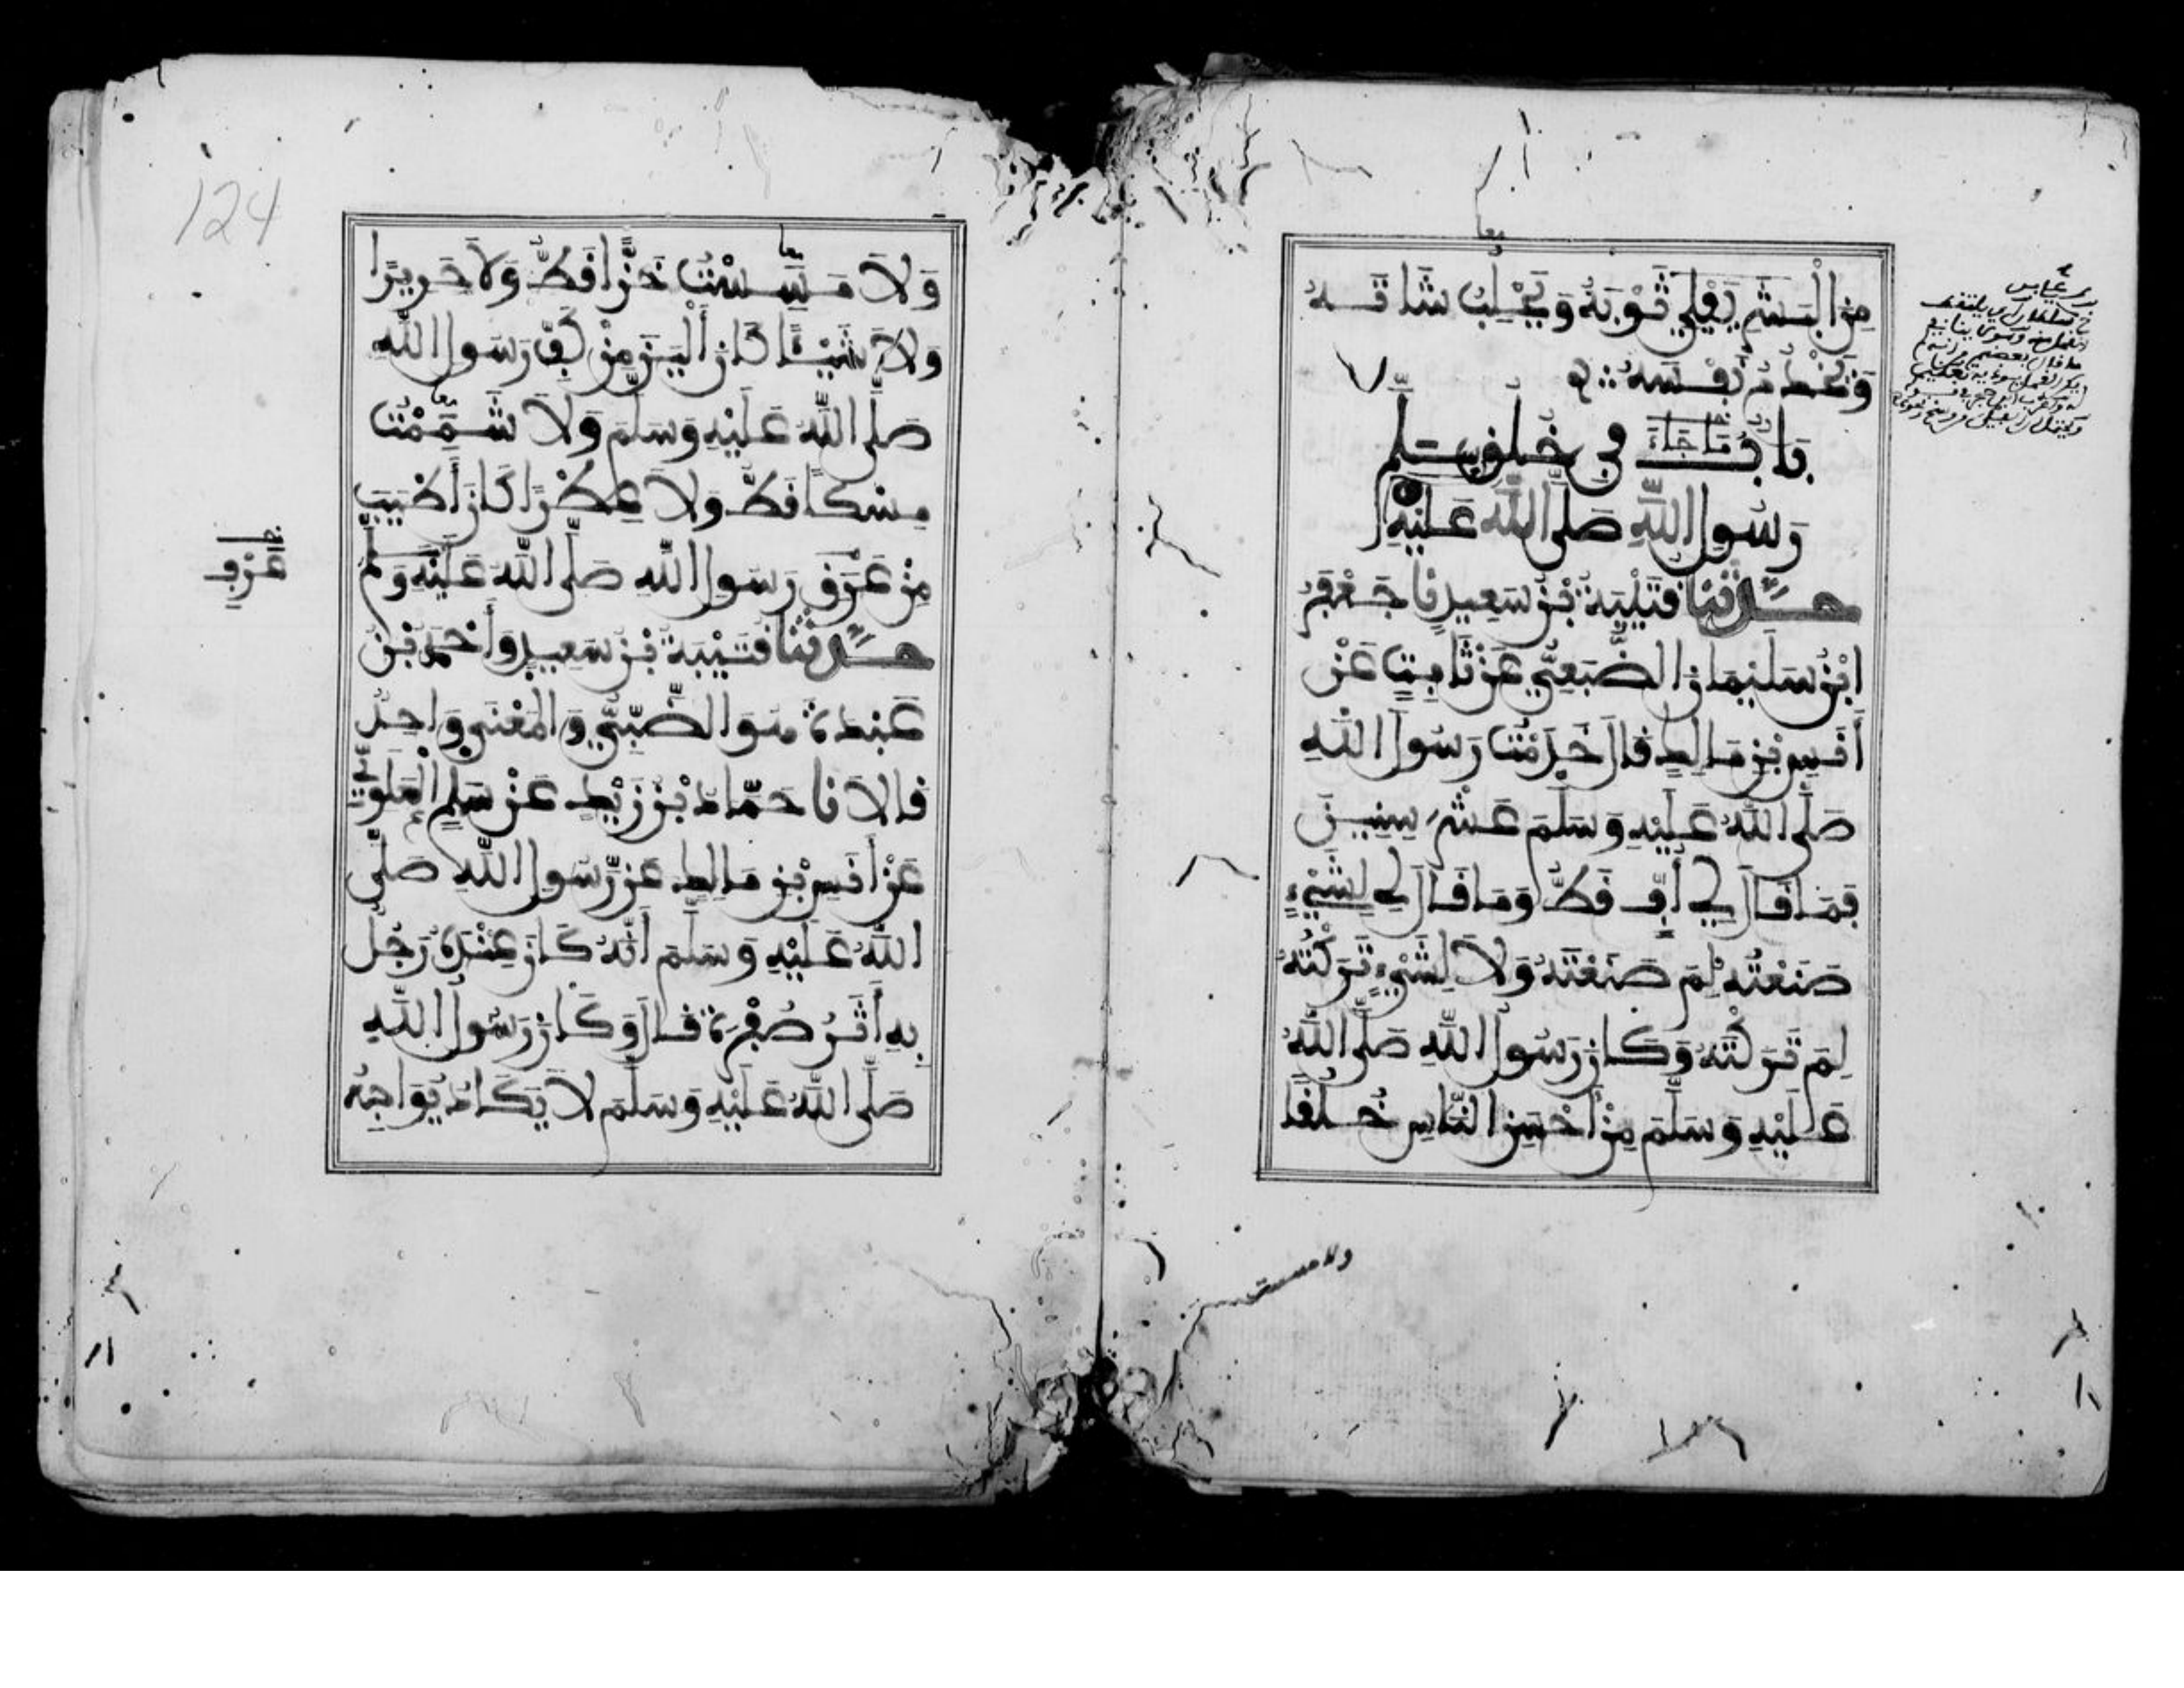 مِنَ الْبَشَرِ يَفْلِي ثَوْبَهُ وَيَحْلِبُ شَاتَهُ
وَيَخْدُمُ نَفْسَهُ
بَابُ مَا جَاءَ فِي خُلُقِ
رَسُولِ اللَّهِ صَلَّى اللَّهُ عَلَيْهِ وسَلَّمَ
حَدَّثَنَا قُتَيْبَةُ بْنُ سَعِيدٍ نَا جَعْفَرُ
ابْنُ سُلَيْمَانَ الضُّبَعِيُّ عَنْ ثَابِتٍ عَنْ
أَنَسِ بْنِ مَالِكٍ قَالَ خَدَمْتُ رَسُولَ اللَّهِ
صَلَّى اللَّهُ عَلَيْهِ وَسَلَّمَ عَشْرَ سِنِينَ
فَمَا قَالَ لِي أُفٍّ قَطُّ وَمَا قَالَ لِي لِشَيْءٍ
صَنَعْتُهُ لِمَ صَنَعْتَهُ وَلَا لِشَيْءٍ تَرَكْتُهُ
لِمَ تَرَكْتَهُ وَكَانَ رَسُولُ اللَّهِ صَلَّى اللَّهُ
عَلَيْهِ وَسَلَّمَ مِنْ أَحْسَنِ النَّاسِ خُلُقًا
ولا مسست
124
وَلَا مَسِسْتُ خَزًّا قَطُّ وَلَا حَرِيرًا
وَلَا شَيْئًا كَانَ أَلْيَنَ مِنْ كَفِّ رَسُولِ اللَّهِ
صَلَّى اللَّهُ عَلَيْهِ وَسَلَّمَ وَلَا شَمِمْتُ
مِسْكًا قَطُّ وَلَا عِطْرًا كَانَ أَطْيَبَ
مِنْ عَرَقِ رَسُولِ اللَّهِ صَلَّى اللَّهُ عَلَيْهِ وَسَلَّمَ
عَرْفِ
حَدَّثَنَا قُتَيْبَةُ بْنُ سَعِيدٍ وَأَحْمَدُ بْنُ
عَبْدَةَ هُوَ الضَّبِّيُّ وَالْمَعْنَى وَاحِدٌ
قَالَا نَا حَمَّادُ بْنُ زَيْدٍ عَنْ سَلْمٍ الْعَلَوِيِّ
عَنْ أَنَسِ بْنِ مَالِكٍ عَنْ رَّسُولِ اللَّهِ صَلَّى
اللَّهُ عَلَيْهِ وَسَلَّمَ أَنَّهُ كَانَ عِنْدَهُ رَجُلٌ
بِهِ أَثَرُ صُفْرَةٍ قَالَ وَكَانَ رَسُولُ اللَّهِ
صَلَّى اللَّهُ عَلَيْهِ وَسَلَّمَ لَا يَكَادُ يُوَاجِهُ